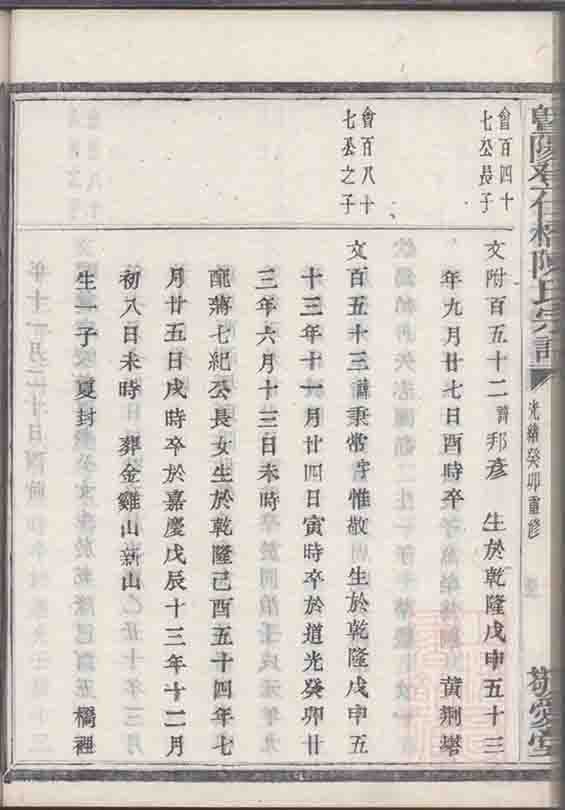 暨陽石橋陳氏宗譜
光緒癸卯重修
敬愛堂
會百四十
七公長子
文附百五十二 諱邦彥 生於乾隆戊申五十三
年九月廿七日酉時卒 黃荊塔
會百八十
七公之子
文百五十三諱秉常字惟敬 生於乾隆戊申五
十三年十一月廿四日寅時卒於道光癸卯廿
三年六月十三日未時
配蔣七紀公長女生於乾隆己酉五十四年七
月廿五日戌時卒於嘉慶戊辰十三年十二月
初八日未時 葬金雞山新山
生一子 夏封 橋裡